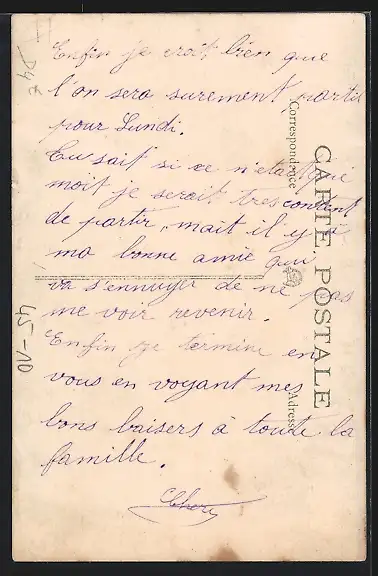 Enfin je croit bien que
l'on sera surement partit
pour Lundi.
Tu sait si ce n'etait que
moit je serait tres content
de partir, mait il y a
ma bonne amie qui
va s'ennuyer de ne pas
me voir revenir.
Enfin je termine en
vous en voyant mes
bons baisers à toute la
famille.
CARTE POSTALE
Correspondance
Adresse
45-10